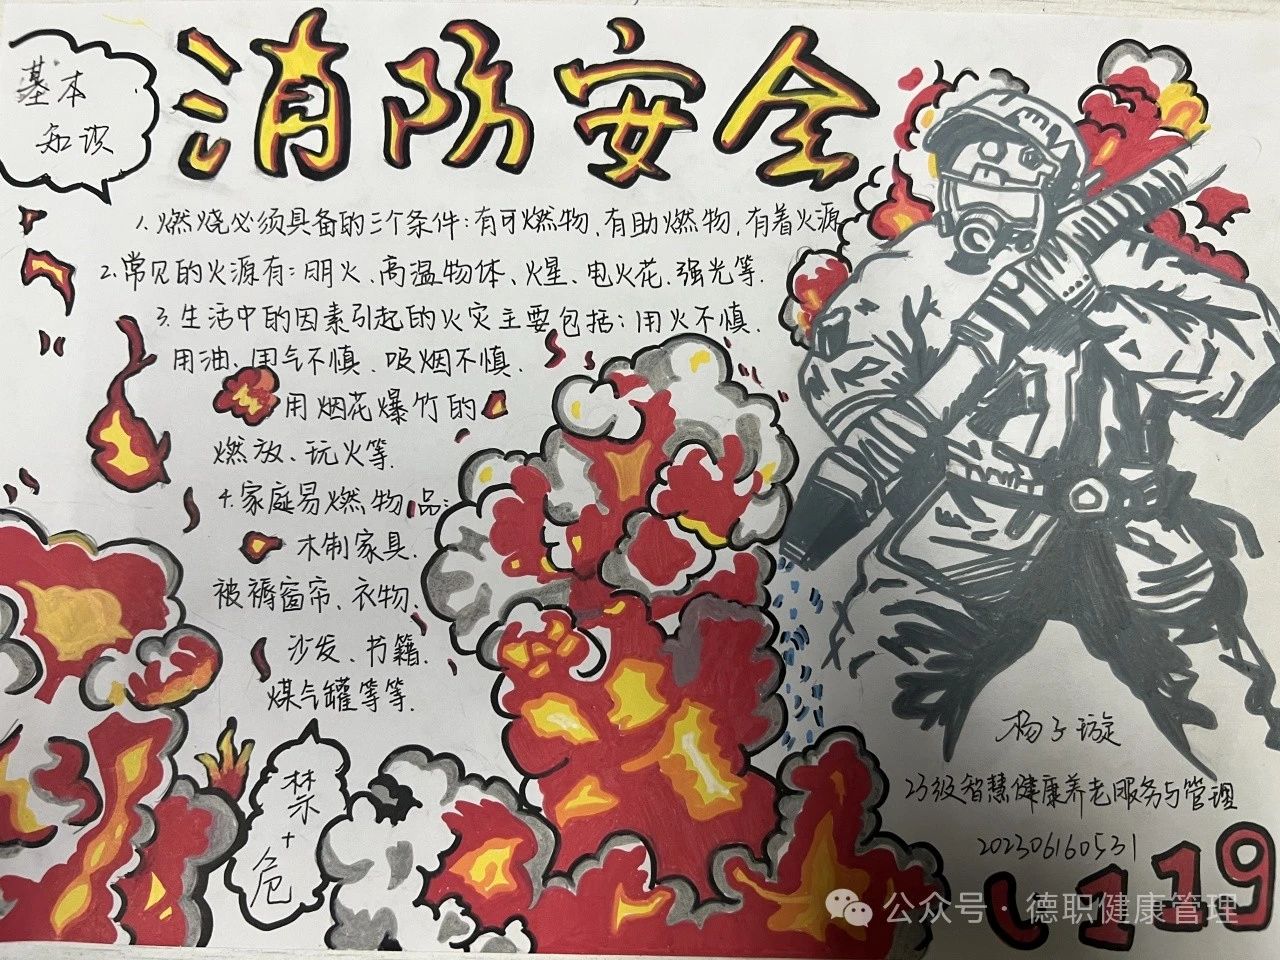 消防安全
基本
知识
1.燃烧必须具备的三个条件:有可燃物、有助燃物,有着火源
2.常见的火源有:明火、高温物体、火星、电火花、强光等.
3.生活中的因素引起的火灾主要包括:用火不慎.
用油、用气不慎、吸烟不慎.
用烟花爆竹的
燃放、玩火等.
4.家庭易燃物品:
木制家具.
被褥窗帘、衣物.
沙发、书籍.
煤气罐等等.
禁
+
危
杨子璇
23级智慧健康养老服务与管理
202306160531
119
公众号·德职健康管理